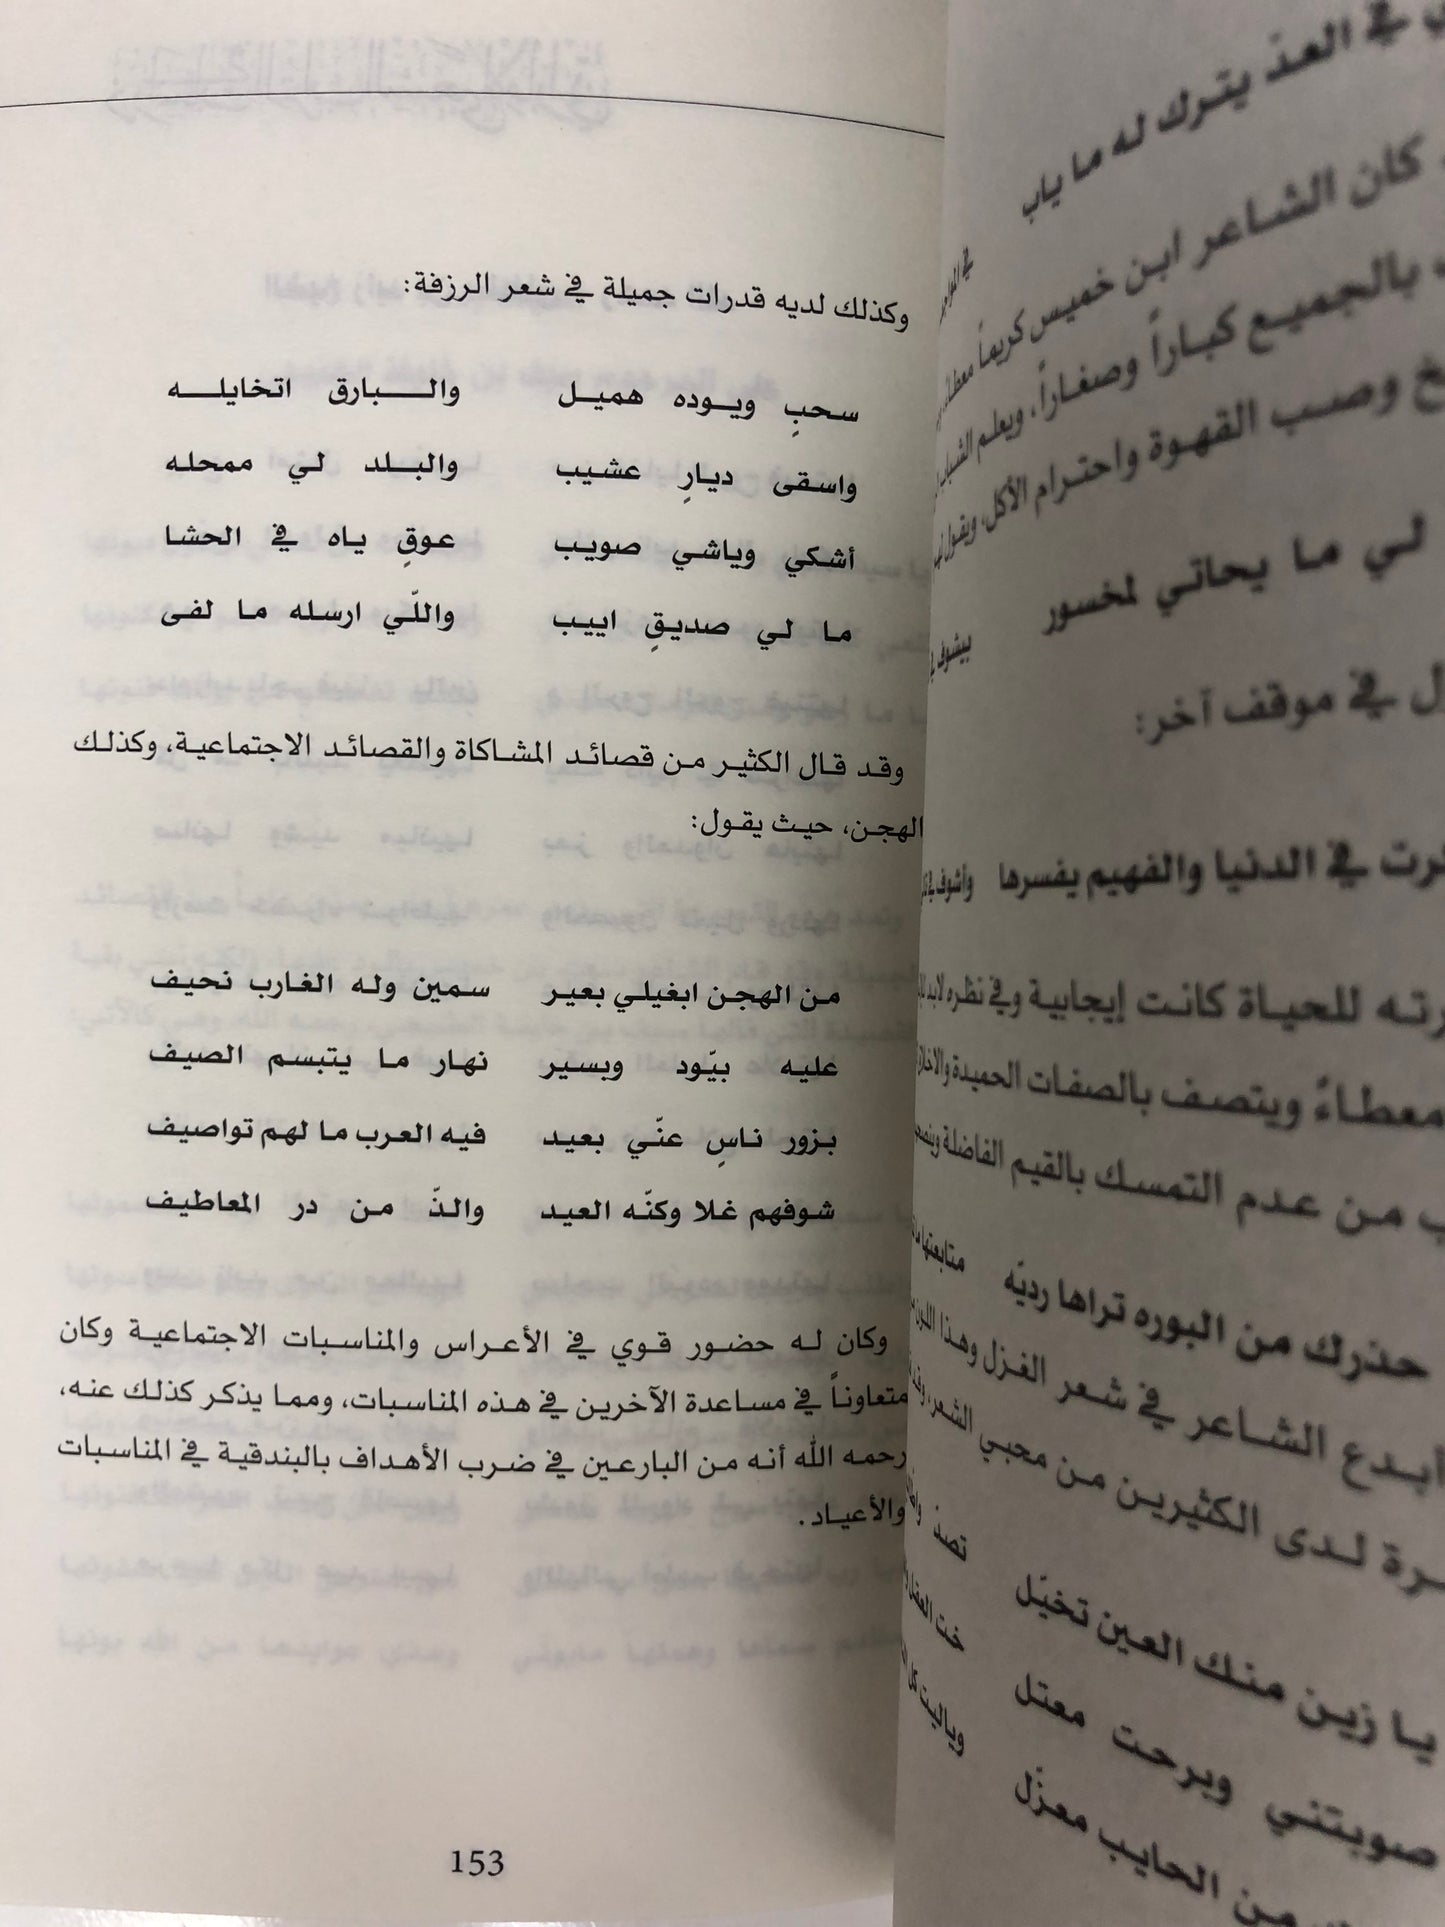 ي في العدّ يترك له ما ياب
كان الشاعر ابن خميس كريماً
بالجميع كباراً وصغاراً، ويعلم الشباب
وصب القهوة واحترام الأكل، ويقول
لي ما يحاتي لمخسور
بيشوف
ل في موقف آخر:
في الدنيا والفهيم يفسرها وأشوف
رته للحياة كانت إيجابية وفي نظره لابد
معطاءً ويتصف بالصفات الحميدة والاخلاق
ب من عدم التمسك بالقيم الفاضلة
حذرك من البوره تراها رديّه
أبدع الشاعر في شعر الغزل وهذا اللون
رة لدى الكثيرين من محبي الشعر،
يا زين منك العين تخيّل
صوبتني وبرحت معتل
من الحايب معزّل
وكذلك لديه قدرات جميلة في شعر الرزفة:
سحبٍ ويوده هميل والبارق اتخايله
واسقى ديارٍ عشيب والبلد لي ممحله
أشكي وياشي صويب عوقٍ ياه في الحشا
ما لي صديقٍ اييب واللّي ارسله ما لفى
وقد قال الكثير من قصائد المشاكاة والقصائد الاجتماعية، وكذلك
الهجن، حيث يقول:
من الهجن ابغيلي بعير سمين وله الغارب نحيف
عليه بيّود وبسير نهار ما يتبسم الصيف
بزور ناسٍ عنّي بعيد فيه العرب ما لهم تواصيف
شوفهم غلا وكنّه العيد والذّ من در المعاطيف
وكان له حضور قوي في الأعراس والمناسبات الاجتماعية وكان
متعاوناً في مساعدة الآخرين في هذه المناسبات، ومما يذكر كذلك عنه،
رحمه الله أنه من البارعين في ضرب الأهداف بالبندقية في المناسبات
والأعياد.
153